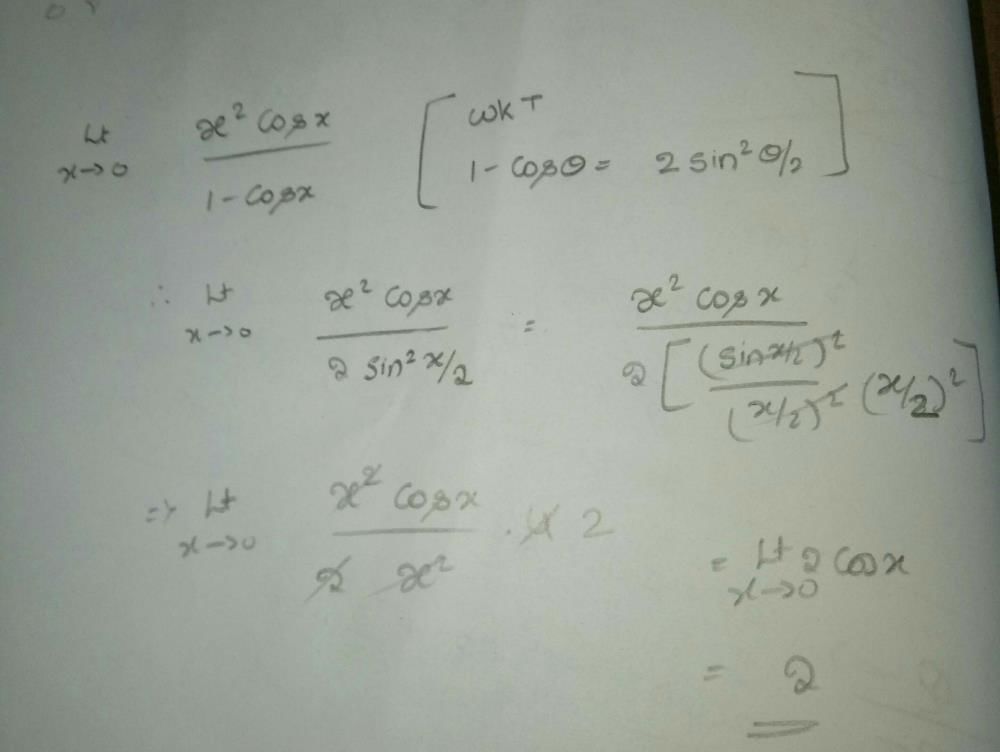 Lt x→0 x² cosx / 1 - cosx [ WKT
1 - cosθ = 2 sin² θ/2 ]
∴ Lt x→0 x² cosx / 2 sin² x/2 = x² cosx / 2 [ (sin x/2)² / (x/2)² (x/2)² ]
=> Lt x→0 x² cosx / 2 x² . 4 2
= Lt x→0 2 cosx
= 2